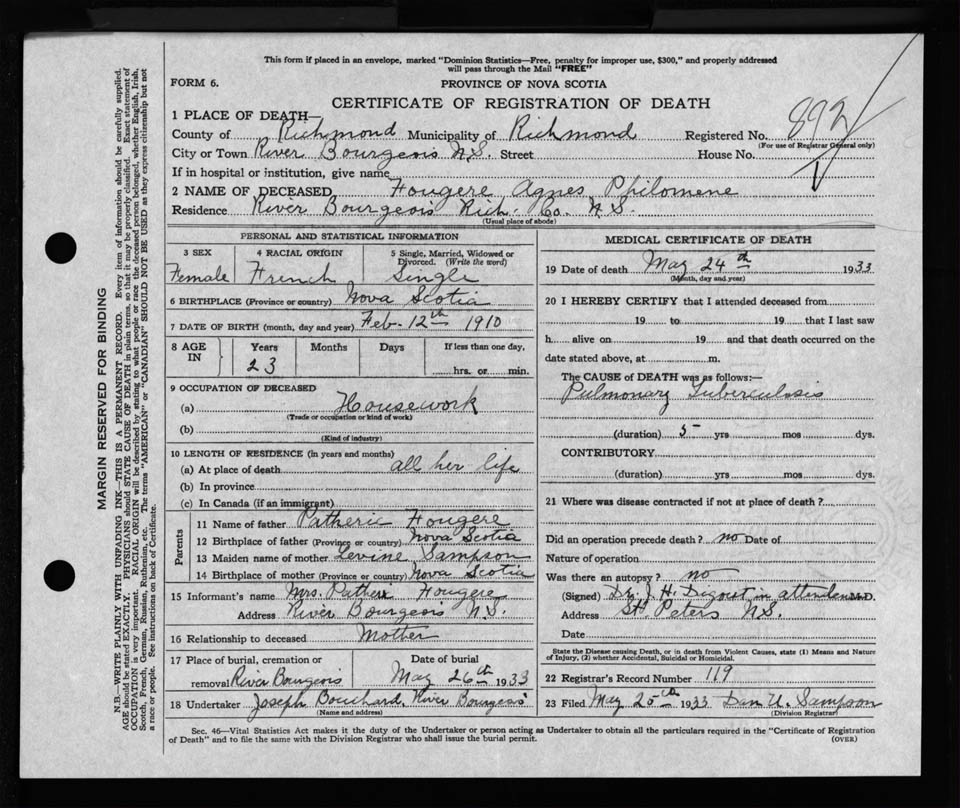 This form if placed in an envelope, marked "Dominion Statistics—Free, penalty for improper use, $300," and properly addressed
will pass through the Mail "FREE"
FORM 6.
PROVINCE OF NOVA SCOTIA
CERTIFICATE OF REGISTRATION OF DEATH
1 PLACE OF DEATH—
County of Richmond Municipality of Richmond Registered No. 892
(For use of Registrar General only)
City or Town River Bourgeois N.S. Street House No.
If in hospital or institution, give name
2 NAME OF DECEASED Fougere Agnes Philomene
Residence River Bourgeois Rich. Co. N.S.
(Usual place of abode)
PERSONAL AND STATISTICAL INFORMATION
3 SEX 4 RACIAL ORIGIN 5 Single, Married, Widowed or
Divorced. (Write the word)
Female French Single
6 BIRTHPLACE (Province or country) Nova Scotia
7 DATE OF BIRTH (month, day and year) Feb. 12th 1910
8 AGE IN Years Months Days If less than one day,
23 hrs. or min.
9 OCCUPATION OF DECEASED
(a) Housework
(Trade or occupation or kind of work)
(b)
(Kind of industry)
10 LENGTH OF RESIDENCE (in years and months)
(a) At place of death all her life
(b) In province
(c) In Canada (if an immigrant)
Parents
11 Name of father Patheric Fougere
12 Birthplace of father (Province or country) Nova Scotia
13 Maiden name of mother Levine Sampson
14 Birthplace of mother (Province or country) Nova Scotia
15 Informant's name Mrs. Fougere
Address River Bourgeois N.S.
16 Relationship to deceased Mother
17 Place of burial, cremation or Date of burial
removal River Bourgeois May 26th 1933
18 Undertaker Joseph Bouchard, River Bourgeois
(Name and address)
MEDICAL CERTIFICATE OF DEATH
19 Date of death May 24th 1933
(Month, day and year)
20 I HEREBY CERTIFY that I attended deceased from
19 to 19 that I last saw
h alive on 19 and that death occurred on the
date stated above, at m.
The CAUSE of DEATH was as follows:—
Pulmonary Tuberculosis
(duration) 5 yrs mos dys.
CONTRIBUTORY
(duration) yrs mos dys.
21 Where was disease contracted if not at place of death?
Did an operation precede death? no Date of
Nature of operation
Was there an autopsy? no
(Signed) Dr. J. H. Digout in attendance M.D.
Address St. Peters N.S.
Date
State the Disease causing Death, or in death from Violent Causes, state (1) Means and Nature
of Injury, (2) whether Accidental, Suicidal or Homicidal.
22 Registrar's Record Number 119
23 Filed May 25th 1933 Dan U. Sampson
(Division Registrar)
Sec. 46—Vital Statistics Act makes it the duty of the Undertaker or person acting as Undertaker to obtain all the particulars required in the "Certificate of Registration
of Death" and to file the same with the Division Registrar who shall issue the burial permit. (OVER)
MARGIN RESERVED FOR BINDING
N.B.—WRITE PLAINLY WITH UNFADING INK—THIS IS A PERMANENT RECORD. Every item of information should be carefully supplied.
AGE should be stated EXACTLY. PHYSICIANS should STATE CAUSE OF DEATH in plain terms, so that it may be properly classified. Exact statement of
OCCUPATION is very important. RACIAL ORIGIN will be described by stating to what people or race the deceased person belonged, whether English, Irish,
Scotch, French, German, Russian, Ruthenian, etc. The terms "AMERICAN" or "CANADIAN" SHOULD NOT BE USED as they express citizenship but not
a race or people. See instructions on back of Certificate.